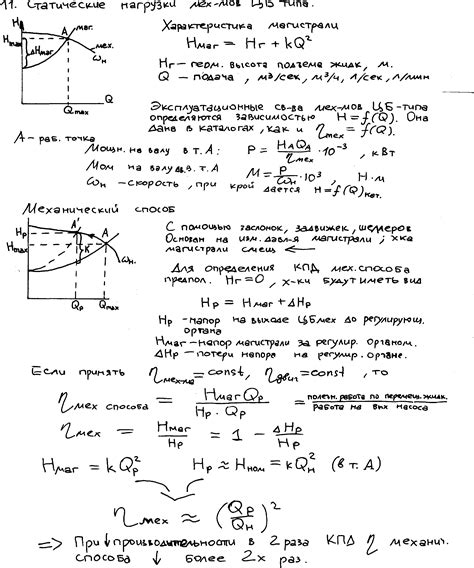 11. Статические нагрузки мех-мов ЦБ типа.
H
Hmax
ΔHмаг
A
маг.
мех.
ωн
Q
Qmax
Характеристика магистрали
Hмаг = Hг + kQ²
Hг – геом. высота подъема жидк, м.
Q – подача, м³/сек, м³/ч, л/сек, л/мин
Эксплуатационные св-ва мех-мов ЦБ-типа
определяются зависимостью H = f(Q). Она
дана в каталогах, как и ηмех = f(Q).
А – раб. точка
Мощн. на валу в т. А: P = HAQA/ηмех · 10⁻³, кВт
Мом на валу в т. А M = P/ωн · 10³, Н·м
ωн – скорость, при крой дается H = f(Q)кат.
Механический способ
Hр
Hmax
A'
A
K
ωн.
Qр
Qmax
С помощью заслонок, задвижек, шиберов
Основан на изм. давл-я магистрали; хка
магистрали смещ ←
Для определения КПД мех. способа
предпол. Hг = 0, х-ки будут иметь вид
Hр = Hмаг + ΔHр
Hр – напор на выходе ЦБмех до регулирующ.
органа
Hмаг – напор магистрали за регулир. органом.
ΔHр – потери напора на регулир. органе.
Если принять ηмех-ма = const, ηдвиг = const, то
ηмех способа = HмагQр/Hр · Qр = полезн. работа по перемещ. жидк./работа на вых насоса
ηмех = Hмаг/Hр = 1 – ΔHр/Hр
Hмаг = kQр² Hр ≈ Hном = kQн² (в т. А)
ηмех ≈ (Qр/Qн)²
=> При ↓ производительности в 2 раза КПД η механич.
способа ↓ более 2х раз.